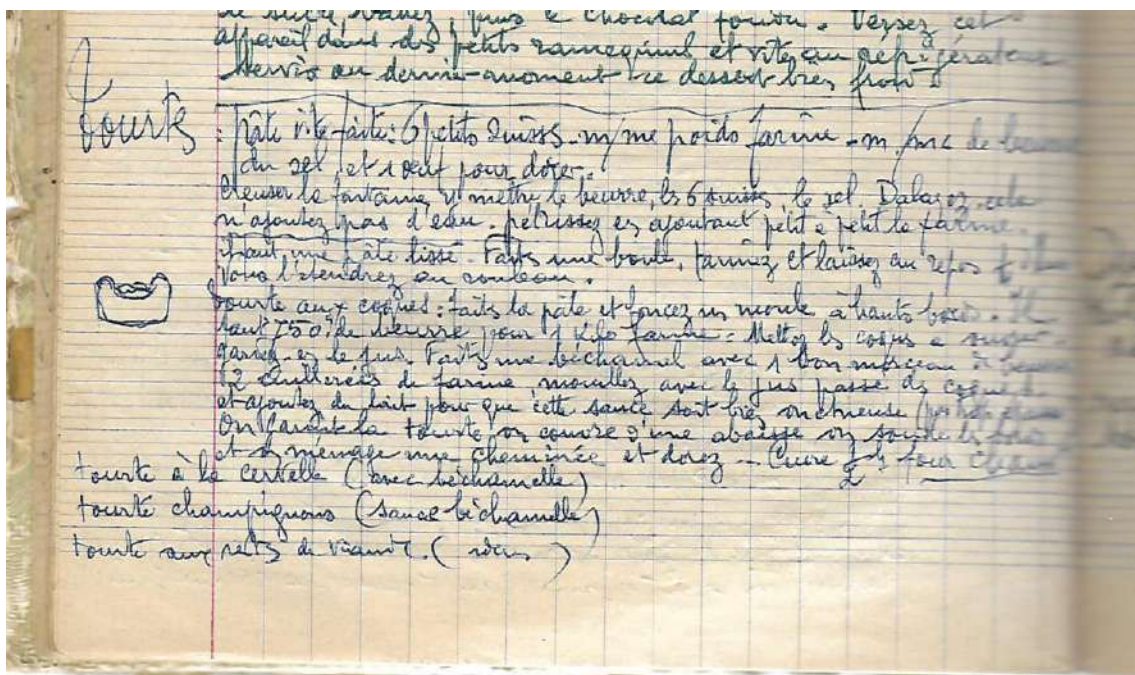 le sucre, vanez, puis le chocolat fondu. Versez cet
appareil dans des petits ramequins et vite au refrigerateur
servir au dernier moment ce dessert très froid
Tourtes : Pâte vite faite : 6 petits suisses - m/me poids farine - m/me de beurre
du sel, et 1 oeuf pour dorer.
Creuser la fontaine, y mettre le beurre, les 6 suisses, le sel. cela
n'ajoutez pas d'eau. pétrissez en ajoutant petit à petit la farine.
une pâte lisse. Faites une boule, farinez et laissez au repos
Vous l'étendrez au rouleau.
tourte aux coques : faites la pâte et foncez un moule à hauts bords. Il
faut 750 de beurre pour 1 kilo farine. Mettez les coques à
gardez-en le jus. Faites une béchamel avec 1 bon morceau de beurre
2 cuillerées de farine, mouillez avec le jus passé des coques
et ajoutez du lait pour que cette sauce soit bien onctueuse (pas trop
On garnit la tourte, on couvre d'une abaisse on soude les bords
et on ménage une cheminée et dorez - Cuire four chaud
tourte à la cervelle (avec béchamelle)
tourte champignons (sauce béchamelle)
tourte aux de viande. ( )